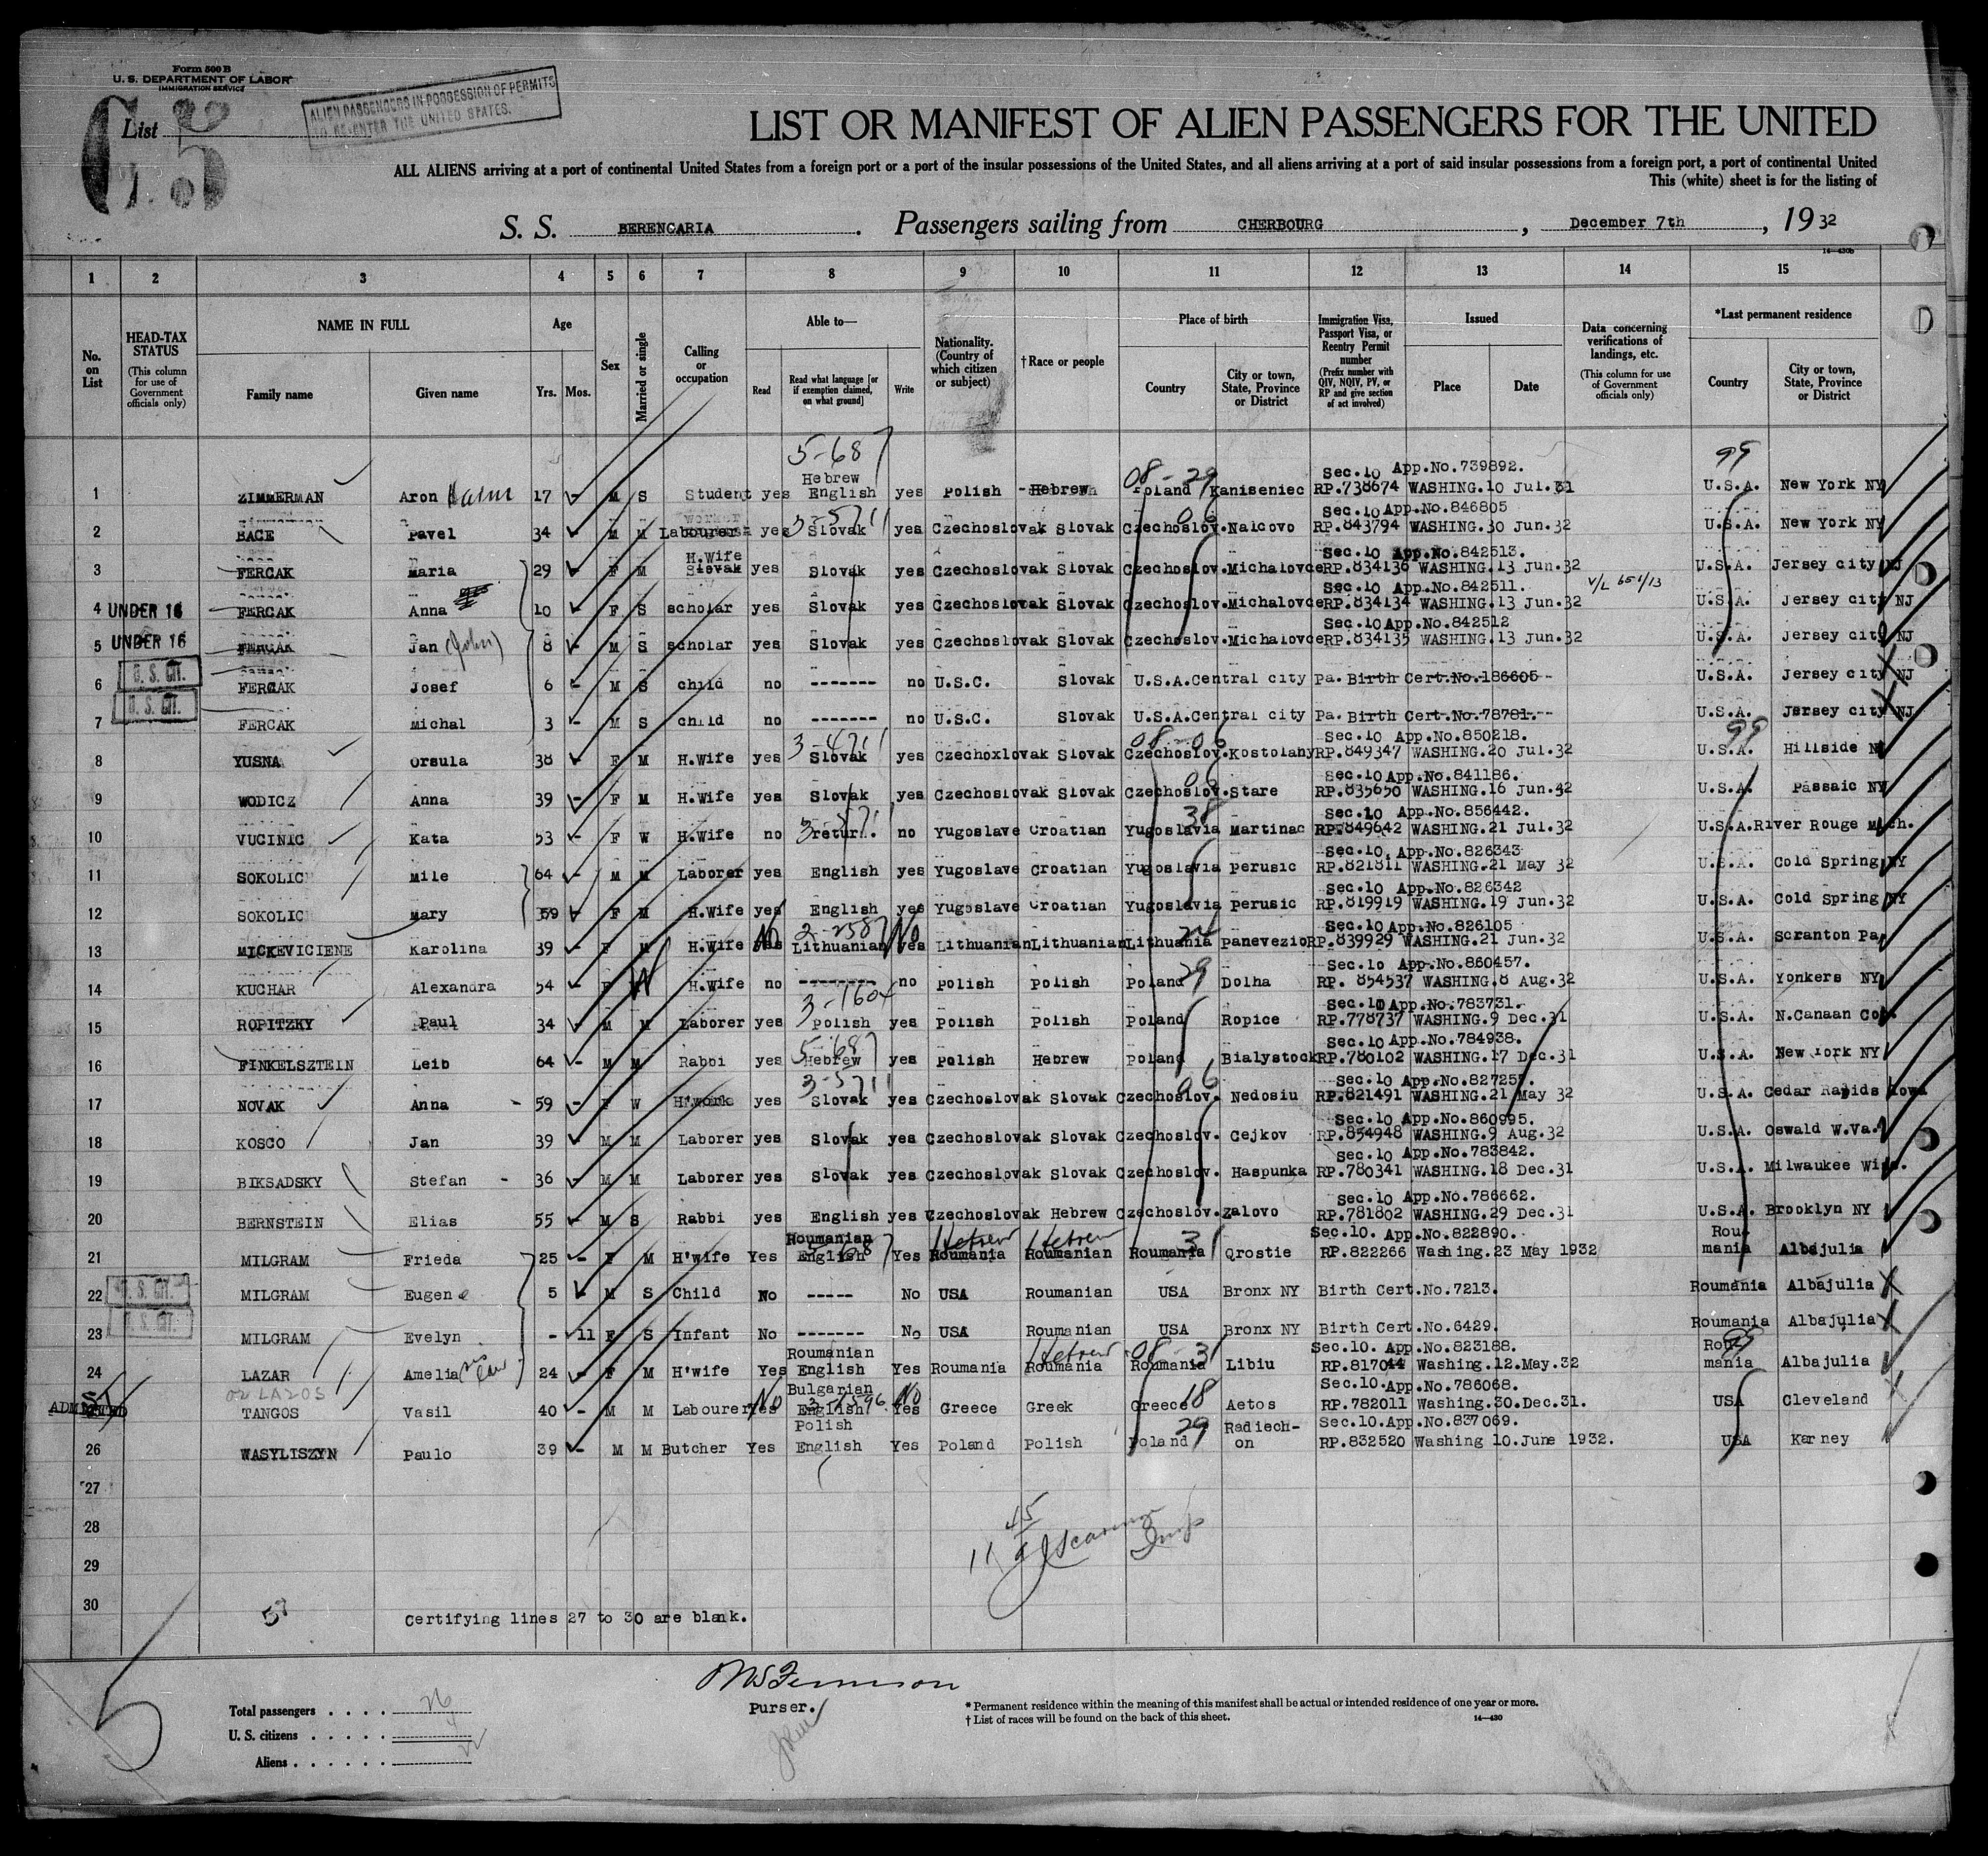 Form 500 B
U. S. DEPARTMENT OF LABOR
IMMIGRATION SERVICE
List
ALIEN PASSENGERS IN POSSESSION OF PERMITS
TO RE-ENTER THE UNITED STATES.
LIST OR MANIFEST OF ALIEN PASSENGERS FOR THE UNITED
ALL ALIENS arriving at a port of continental United States from a foreign port or a port of the insular possessions of the United States, and all aliens arriving at a port of said insular possessions from a foreign port, a port of continental United
This (white) sheet is for the listing of
S. S. BERENCARIA. Passengers sailing from CHERBOURG, December 7th, 19 32
14—430b
1 2 3 4 5 6 7 8 9 10 11 12 13 14 15
No. on List
HEAD-TAX STATUS (This column for use of Government officials only)
NAME IN FULL Family name Given name
Age Yrs. Mos.
Sex
Married or single
Calling or occupation
Able to— Read Read what language [or if exemption claimed, on what ground] Write
Nationality. (Country of which citizen or subject)
†Race or people
Place of birth Country City or town, State, Province or District
Immigration Visa, Passport Visa, or Reentry Permit number (Prefix number with QIV, NQIV, PV, or RP and give section of act involved)
Issued Place Date
Data concerning verifications of landings, etc. (This column for use of Government officials only)
*Last permanent residence Country City or town, State, Province or District
5-687 08-29 99
Hebrew Sec.10 App.No.739892.
1 ZIMMERMAN Aron 17 - M S Student yes English yes Polish Hebrew Poland Kaniseniec RP.738674 WASHING.10 Jul.31 U.S.A. New York NY
Sec.10 App.No.846805
2 BACE Pavel 34 - M M Labourer yes Slovak yes Czechoslovak Slovak Czechoslov. Nalcovo RP.843794 WASHING.30 Jun.32 U.S.A. New York NY
H.Wife Sec.10 App.No.842513.
3 FERCAK Maria 29 F M Slovak yes Slovak yes Czechoslovak Slovak Czechoslov. Michalovce RP.834136 WASHING.13 Jun.32 U.S.A. Jersey city NJ
Sec.10 App.No.842511. V/L 651/13
4 UNDER 16 FERCAK Anna 10 F S scholar yes Slovak yes Czechoslovak Slovak Czechoslov. Michalovce RP.834134 WASHING.13 Jun.32 U.S.A. Jersey city NJ
Sec.10 App.No.842512
5 UNDER 16 FERCAK Jan (John) 8 - M S scholar yes Slovak yes Czechoslovak Slovak Czechoslov. Michalovce RP.834135 WASHING.13 Jun.32 U.S.A. Jersey city NJ
6 U. S. CIT. FERCAK Josef 6 - M S child no ------- no U.S.C. Slovak U.S.A. Central city Pa. Birth Cert.No.186605 U.S.A. Jersey city NJ
7 U. S. CIT. FERCAK Michal 3 - M S child no ------- no U.S.C. Slovak U.S.A. Central city Pa. Birth Cert.No.78781. U.S.A. Jersey city NJ
08-06 99
Sec.10 App.No.850218.
8 YUSNA Orsula 38 F M H.Wife yes Slovak yes Czechoxlovak Slovak Czechoslov. Kostolany RP.849347 WASHING.20 Jul.32 U.S.A. Hillside
Sec.10 App.No.841186.
9 WODICZ Anna 39 - F M H.Wife yes Slovak yes Czechoslovak Slovak Czechoslov. Stare RP.835650 WASHING.16 Jun.32 U.S.A. Passaic NY
38 Sec.10 App.No.856442.
10 VUCINIC Kata 53 - F W H.Wife no no Yugoslave Croatian Yugoslavia Martinac RP.849642 WASHING.21 Jul.32 U.S.A. River Rouge Mich.
Sec.10 App.No.826343
11 SOKOLIC Mile 64 M M Laborer yes English yes Yugoslave Croatian Yugoslavia Perusic RP.821811 WASHING.21 May 32 U.S.A. Cold Spring NY
Sec.10 App.No.826342
12 SOKOLIC Mary 59 F M H.Wife yes English yes Yugoslave Croatian Yugoslavia Perusic RP.819919 WASHING.19 Jun.32 U.S.A. Cold Spring NY
No 2-2587 No 24 Sec.10 App.No.826105
13 MICKEVICIENE Karolina 39 - F M H.Wife yes Lithuanian yes Lithuanian Lithuanian Lithuania Panevezio RP.839929 WASHING.21 Jun.32 U.S.A. Scranton Pa.
Sec.10 App.No.860457.
14 KUCHAR Alexandra 54 - F W H.Wife no --------- no Polish Polish Poland 29 Dolha RP. 854537 WASHING.8 Aug.32 U.S.A. Yonkers NY
3-1604 Sec.10 App.No.783731.
15 ROPITZKY Paul 34 - M M Laborer yes Polish yes Polish Polish Poland Ropice RP.778737 WASHING.9 Dec.31 U.S.A. N.Canaan
5-687 Sec.10 App.No.784938.
16 FINKELSZTEIN Leib 64 - M M Rabbi yes Hebrew yes Polish Hebrew Poland Bialystock RP.780102 WASHING.17 Dec.31 U.S.A. New York NY
3-5711 06 Sec.10 App.No.827257.
17 NOVAK Anna - 59 - F W H'work yes Slovak yes Czechoslovak Slovak Czechoslov. Nedosiu RP.821491 WASHING.21 May 32 U.S.A. Cedar Rapids Iowa
Sec.10 App.No.860995.
18 KOSCO Jan 39 M M Laborer yes Slovak yes Czechoslovak Slovak Czechoslov. Cejkov RP.854948 WASHING.9 Aug.32 U.S.A. Oswald W.Va.
Sec.10 App.No.783842.
19 BIKSADSKY Stefan - 36 - M M Laborer yes Slovak yes Czechoslovak Slovak Czechoslov. Haspunka RP.780341 WASHING.18 Dec.31 U.S.A. Milwaukee Wisc.
Sec.10 App.No.786662.
20 BERNSTEIN Elias 55 - M S Rabbi yes English yes Czechoslovak Hebrew Czechoslov. Zalovo RP.781802 WASHING.29 Dec.31 U.S.A. Brooklyn NY
Roumanian Hebrew Hebrew 31 Sec.10. App.No.822890. Rou-
21 MILGRAM Frieda 25 - F M H'wife Yes English Yes Roumania Roumanian Roumania Qrostie RP.822266 Washing.23 May 1932 mania Albajulia
22 U. S. CIT. MILGRAM Eugene 5 M S Child No ----- No USA Roumanian USA Bronx NY Birth Cert.No.7213. Roumania Albajulia
23 U. S. CIT. MILGRAM Evelyn - 11 F S Infant No ------- No USA Roumanian USA Bronx NY Birth Cert.No.6429. Roumania Albajulia
Roumanian Hebrew 08-31 Sec.10. App.No.823188. Rou- 99
24 LAZAR Amelia 24 - F M H'wife Yes English Yes Roumania Roumania Roumania Libiu RP.817044 Washing.12.May.32 mania Albajulia
or LAZOS No Bulgarian No Sec.10.App.No.786068.
ADMITTED TANGOS Vasil 40 - M M Labourer Yes English Yes Greece Greek Greece 18 Aetos RP.782011 Washing.30.Dec.31. USA Cleveland
Polish 29 Radiech- Sec.10.App.No.837069.
26 WASYLISZYN Paulo 39 M M Butcher Yes English Yes Poland Polish Poland on RP.832520 Washing 10.June 1932. USA Karney
27
28
29
30
Certifying lines 27 to 30 are blank.
Purser.
Total passengers . . . . 26
U. S. citizens . . . . . 4
Aliens . . . . . . 22
* Permanent residence within the meaning of this manifest shall be actual or intended residence of one year or more.
† List of races will be found on the back of this sheet.
14—430